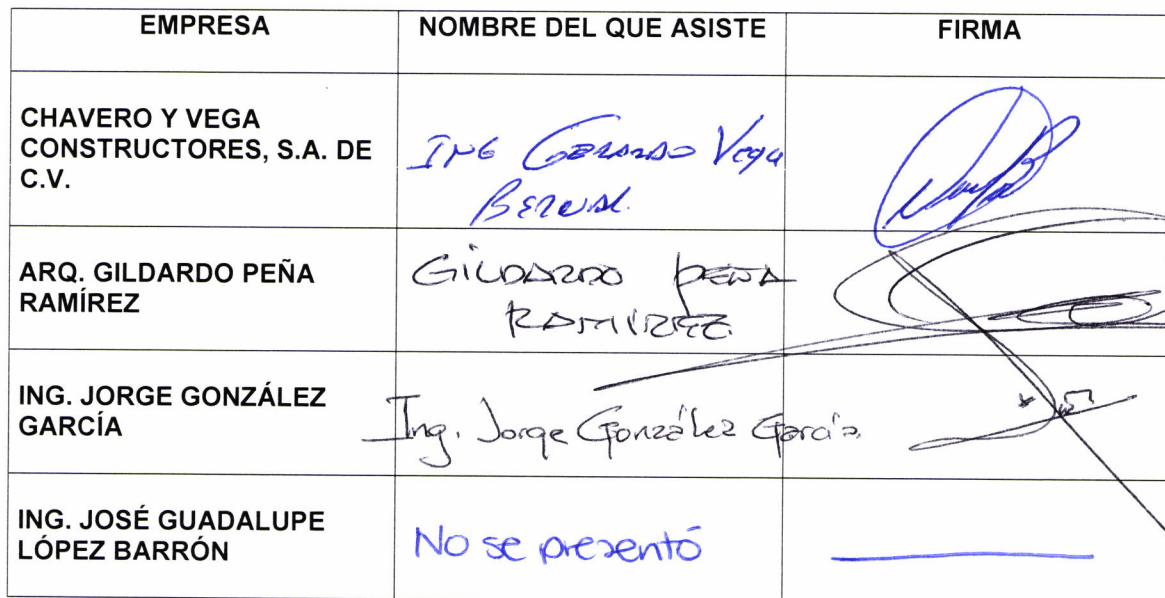 EMPRESA NOMBRE DEL QUE ASISTE FIRMA
CHAVERO Y VEGA
CONSTRUCTORES, S.A. DE
C.V.
ING GERARDO Vega
BERNAL
ARQ. GILDARDO PEÑA
RAMÍREZ
GILDARDO PEÑA
RAMÍREZ
ING. JORGE GONZÁLEZ
GARCÍA
Ing. Jorge González García.
ING. JOSÉ GUADALUPE
LÓPEZ BARRÓN
No se presentó